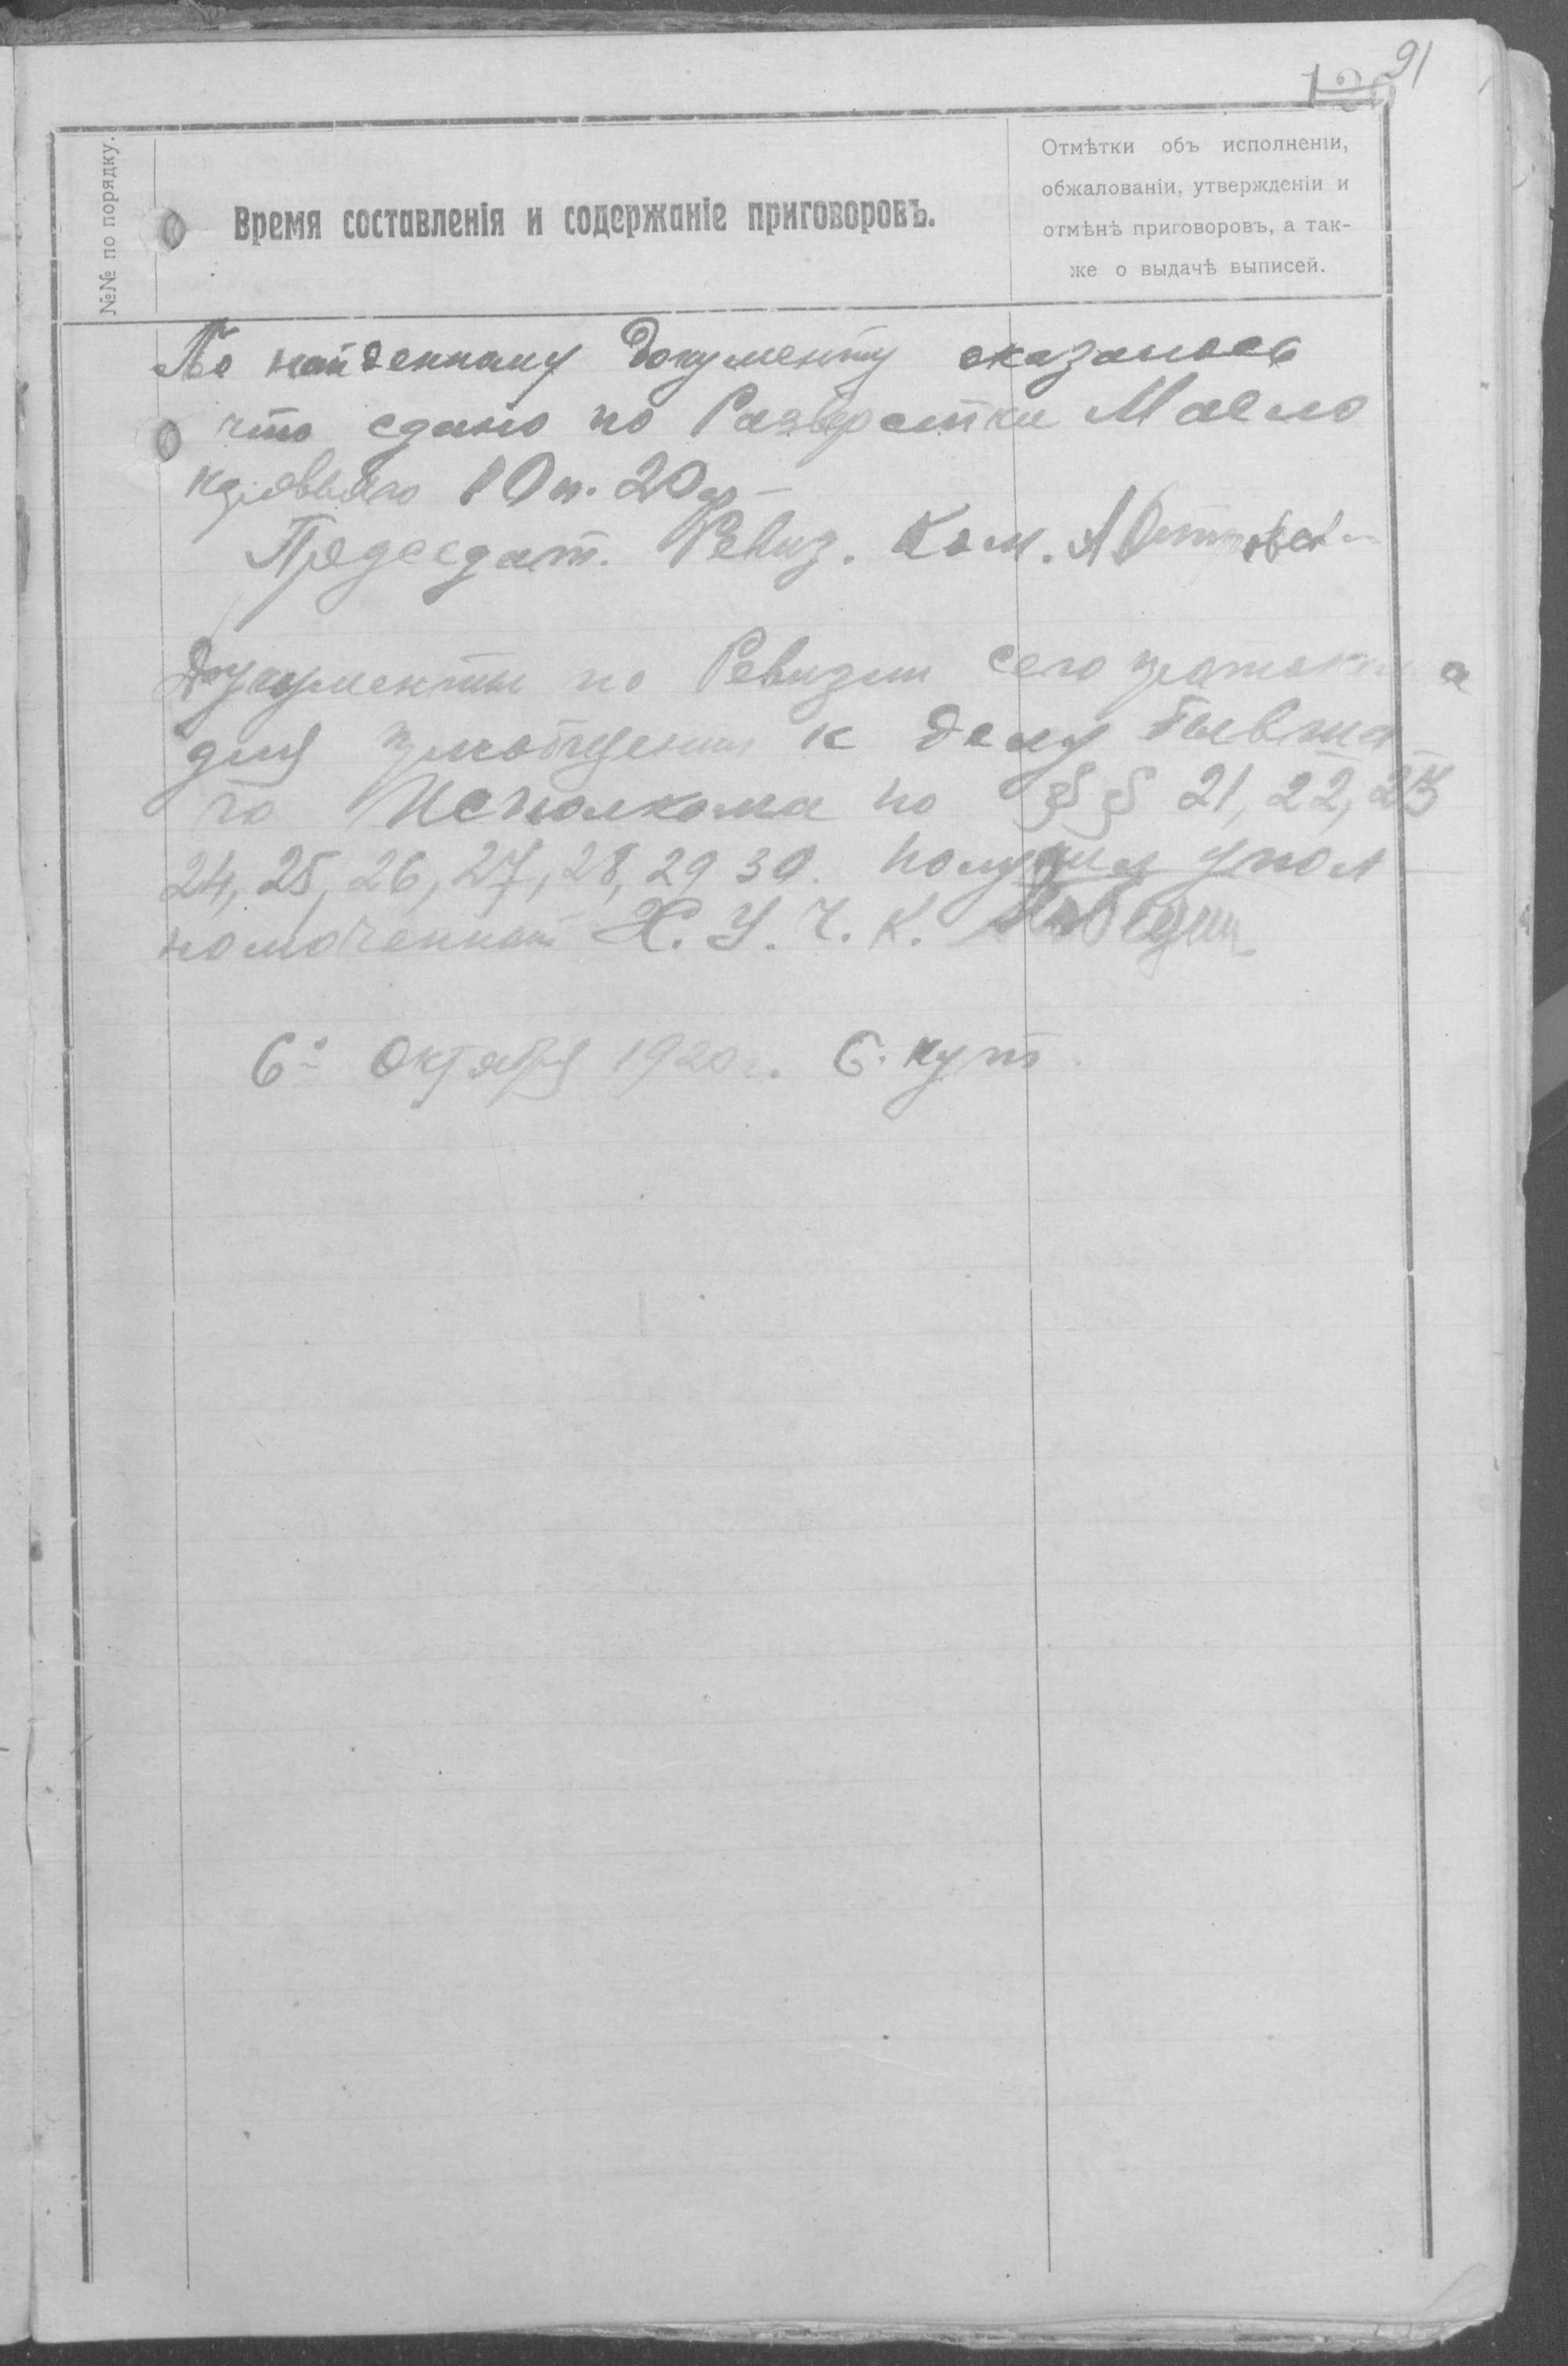 91
120
№№ по порядку.
Время составленія и содержаніе приговоровъ.
Отмѣтки объ исполненіи,
обжалованіи, утвержденіи и
отмѣнѣ приговоровъ, а так-
же о выдачѣ выписей.
По найденному документу оказалось
что сдано по Разверстки Масло
коровьяго 10 п. 20 ф
Председат. Ревиз. Ком.
Документы по Ревизии сего протокола
для приобщения к делу бывша
го Исполкома по §§ 21, 22, 23
24, 25, 26, 27, 28, 29 30. получил упол
номоченный Х. У. Ч. К.
6го Октября 1920 г. С. Кут